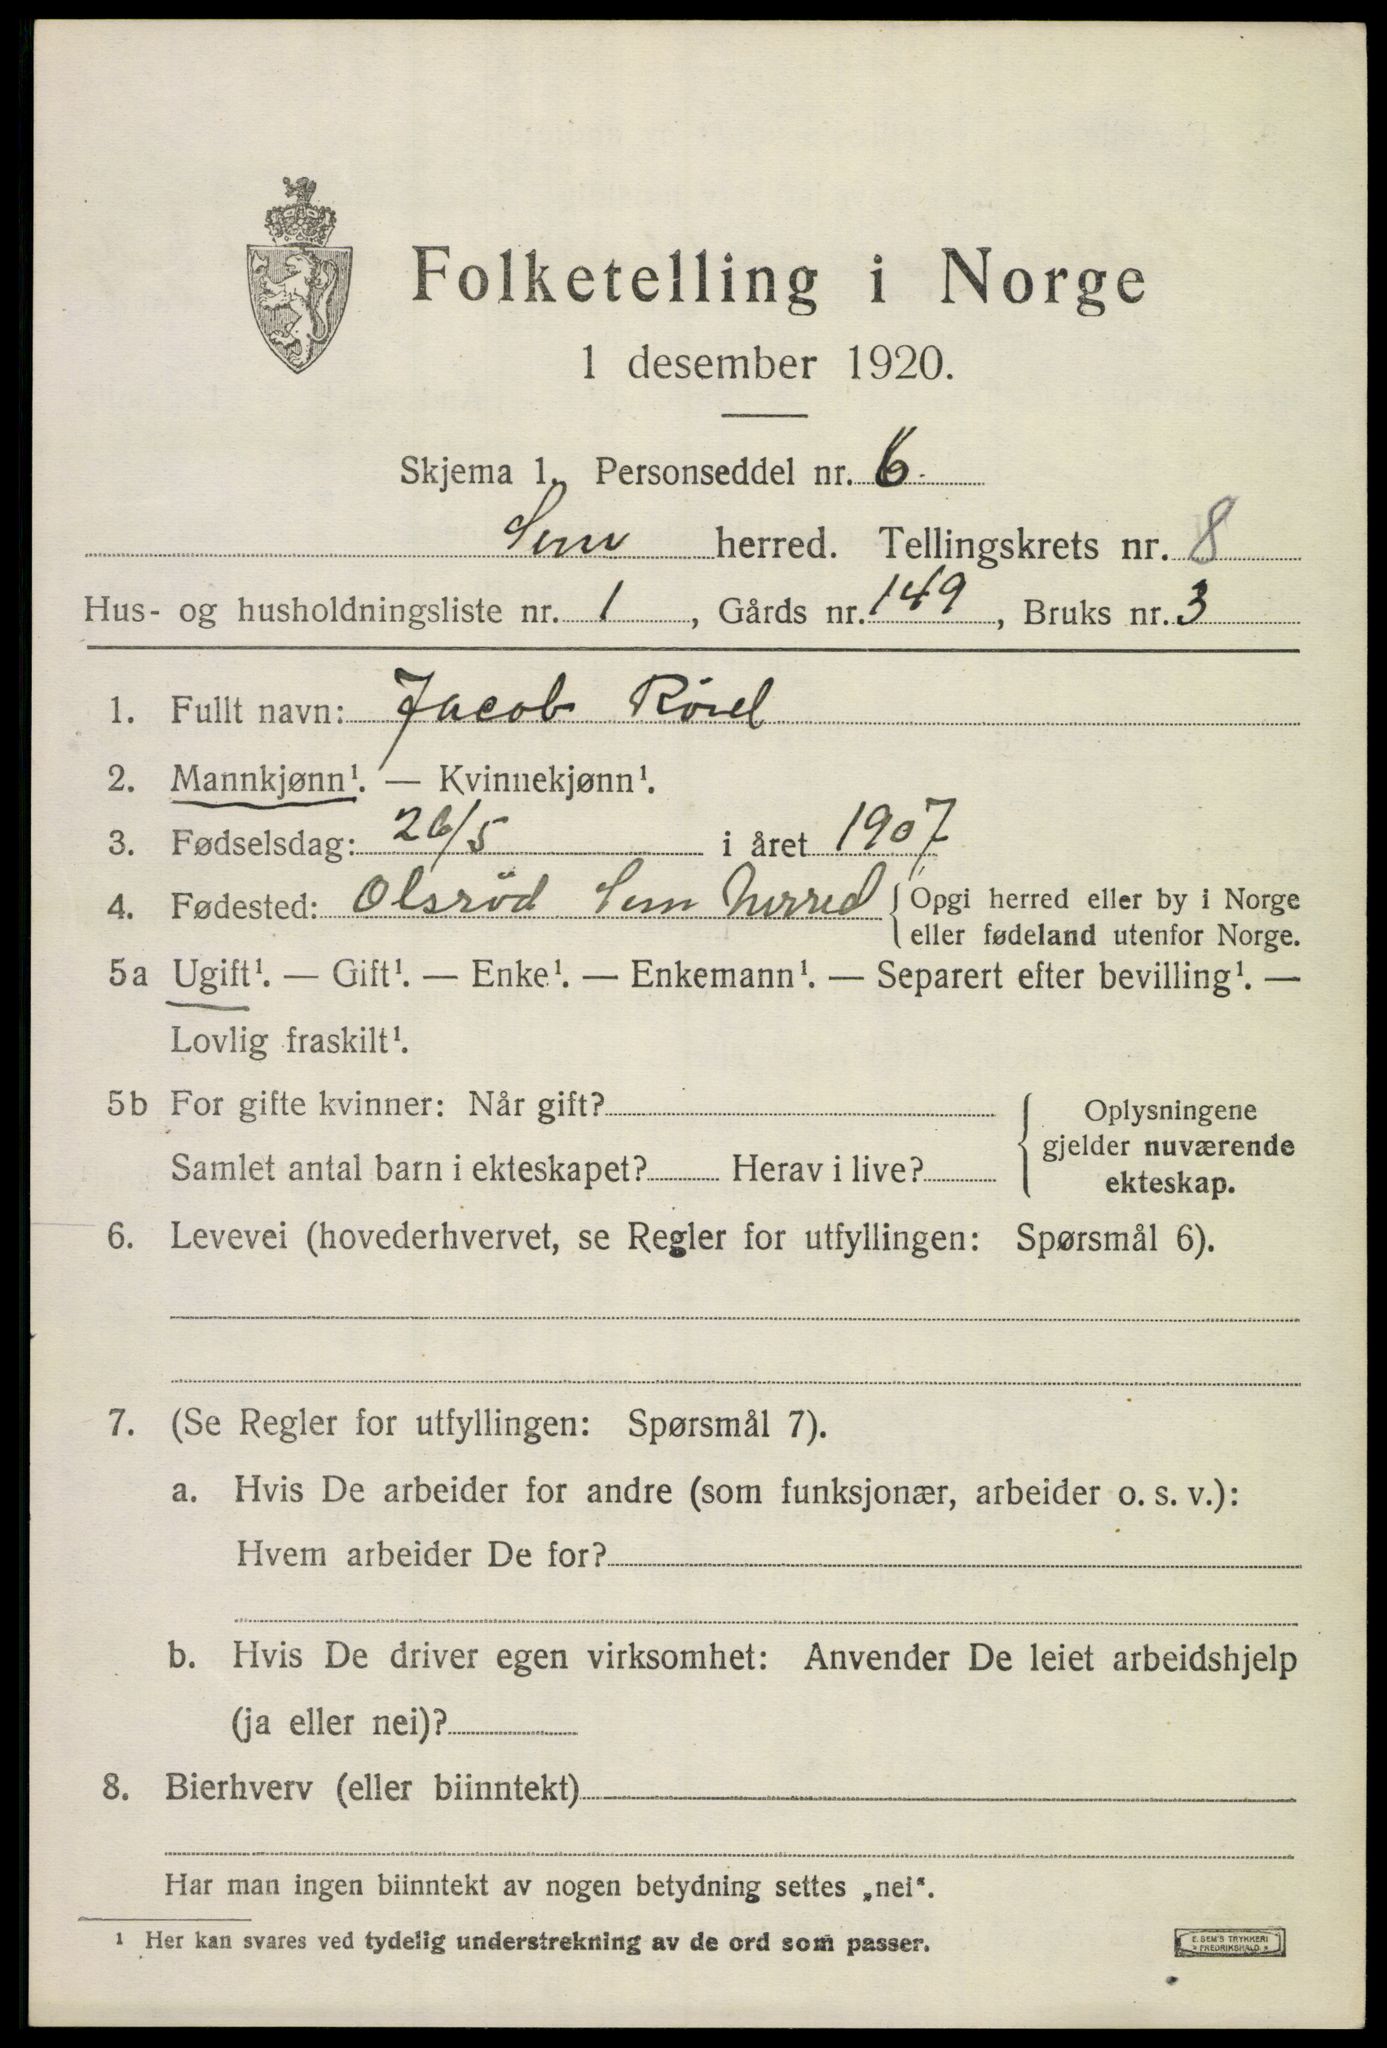 Folketelling i Norge
1 desember 1920.
Skjema 1. Personseddel nr. 6
Sem herred. Tellingskrets nr. 8
Hus- og husholdningsliste nr. 1, Gårds nr. 149, Bruks nr. 3
1. Fullt navn: Jacob
2. Mannkjønn¹. — Kvinnekjønn¹.
3. Fødselsdag: 26/5 i året 1907
4. Fødested: Olsrød Sem herred { Opgi herred eller by i Norge
eller fødeland utenfor Norge.
5a Ugift¹. — Gift¹. — Enke¹. — Enkemann¹. — Separert efter bevilling¹. —
Lovlig fraskilt¹.
5b For gifte kvinner: Når gift?
Samlet antal barn i ekteskapet? Herav i live?
{ Oplysningene
gjelder nuværende
ekteskap.
6. Levevei (hovederhvervet, se Regler for utfyllingen: Spørsmål 6).
7. (Se Regler for utfyllingen: Spørsmål 7).
a. Hvis De arbeider for andre (som funksjonær, arbeider o. s. v.):
Hvem arbeider De for?
b. Hvis De driver egen virksomhet: Anvender De leiet arbeidshjelp
(ja eller nei)?
8. Bierhverv (eller biinntekt)
Har man ingen biinntekt av nogen betydning settes „nei“.
¹ Her kan svares ved tydelig understrekning av de ord som passer.
E. SEM'S TRYKKERI
» FREDRIKSHALD. «